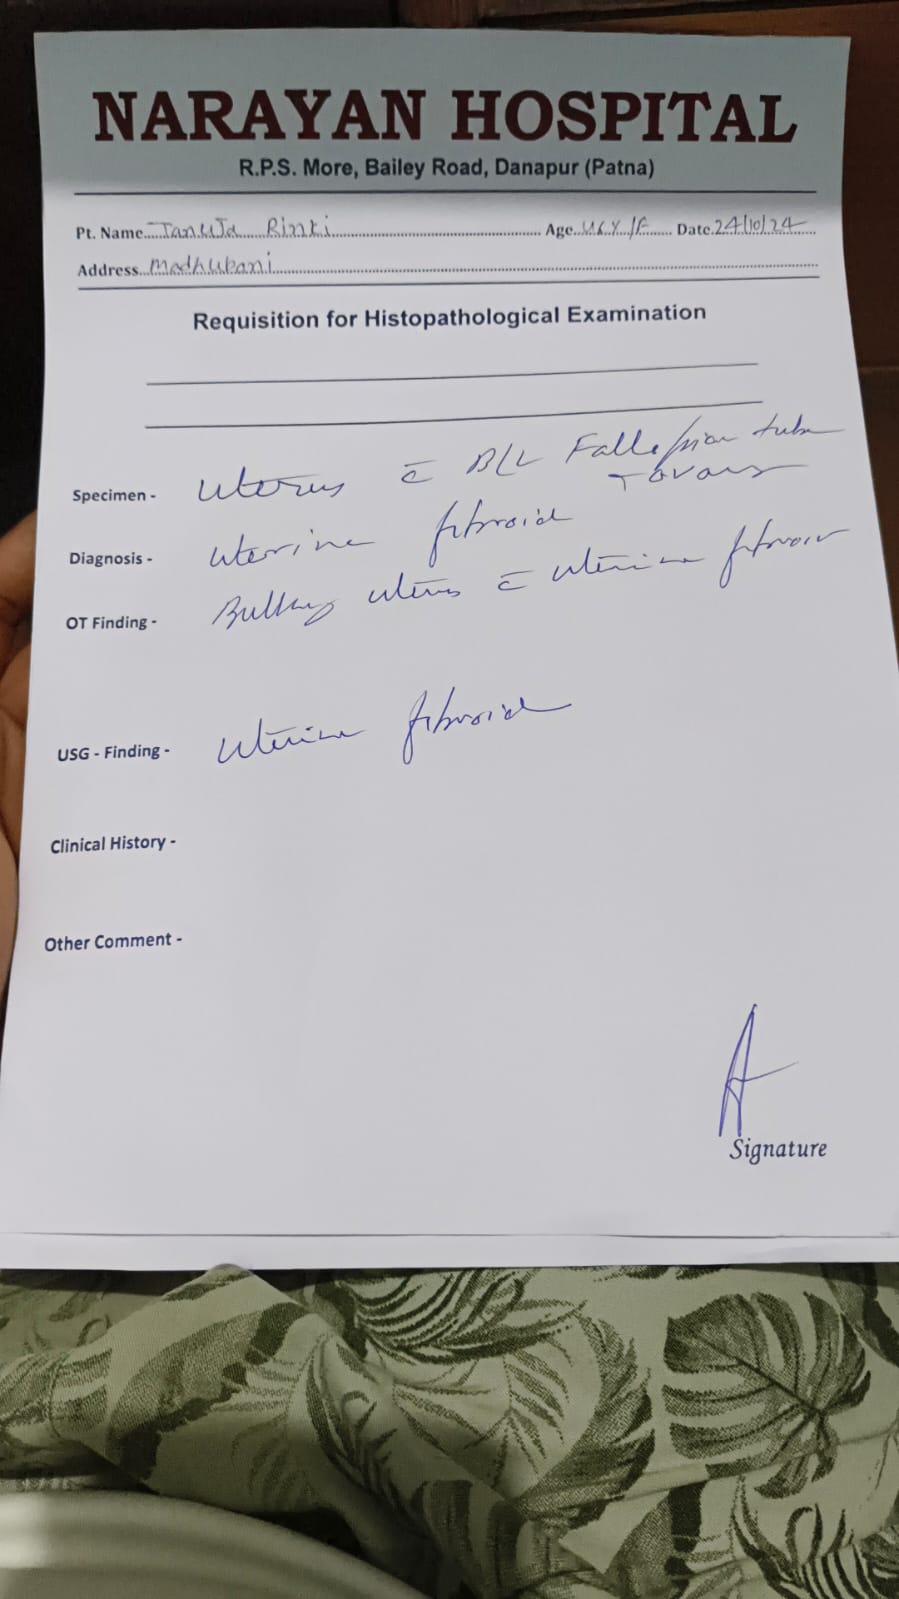 NARAYAN HOSPITAL
R.P.S. More, Bailey Road, Danapur (Patna)
Pt. Name Tanuja Rinki Age 46Y/F Date 24/10/24
Address Madhubani
Requisition for Histopathological Examination
Specimen - Uterus c̄ B/L Fallopian tube
+ ovary
Diagnosis - Uterine fibroid
OT Finding - Bulky uterus c̄ uterine fibroid
USG - Finding - Uterine fibroid
Clinical History -
Other Comment -
Signature